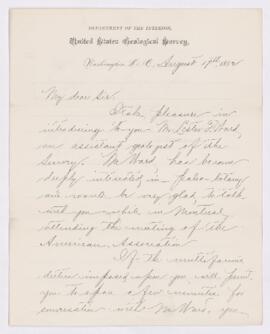 DEPARTMENT OF THE INTERIOR,
United States Geological Survey,
Washington D. C. August 17th 1882
My dear Sir.
I take pleasure in
introducing to you Mr Lester F. Ward,
an assistant geologist of the
Survey. Mr Ward, has become
deeply interested in paleo-botany
and would be very glad to talk
with you while in Montreal
attending the meeting of the
American Association
If the multifarious
duties imposed upon you will permit
you to spare a few minutes for
conversation with Mr Ward, you